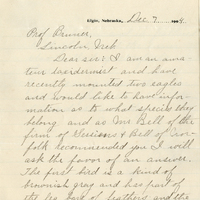 Elgin, Nebraska, Dec 7 1908.
Prof Bruner,
Lincoln, Neb
Dear sir: I am an ama
teur taxidermist and have
recently mounted two eagles
and would like to have infor-
mation as to what species they
belong and as Mr Bell of the
firm of Sessions & Bell of Nor-
folk recommended you I will
ask the favor of an answer.
The first bird is a kind of
brownish gray and has part of
the leg bare of feathers and the